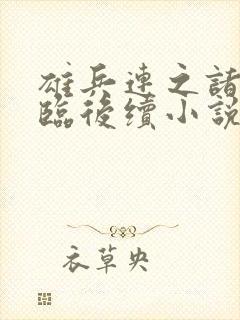 雄兵連之諸
臨後續小說
衣草央